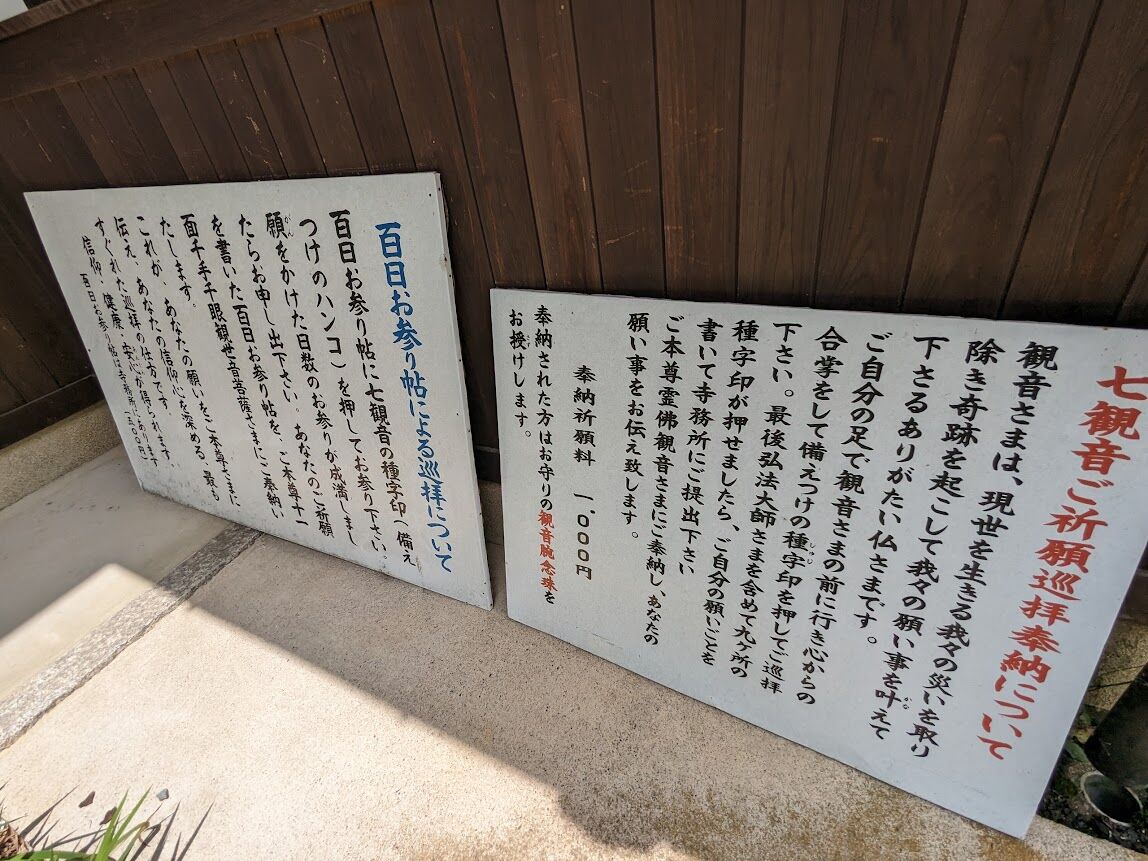 七観音ご祈願巡拝奉納について
観音さまは、現世を生きる我々の災いを取り
除き奇跡を起こして我々の願い事を叶えて
下さるありがたい仏さまです。
ご自分の足で観音さまの前に行き心からの
合掌をして備えつけの種字印を押してご巡拝
下さい。最後弘法大師さまを含めて九ヶ所の
種字印が押せましたら、ご自分の願いごとを
書いて寺務所にご提出下さい
ご本尊霊佛観音さまにご奉納し、あなたの
願い事をお伝え致します。
奉納祈願料 一、000円
奉納された方はお守りの観音腕念珠を
お授けします。
百日お参り帖による巡拝について
百日お参り帖に七観音の種字印(備え
つけのハンコ)を押してお参り下さい。
願をかけた日数のお参りが成満しまし
たらお申し出下さい。あなたのご祈願
を書いた百日お参り帖を、ご本尊十一
面千手千眼観世音菩薩さまにご奉納い
たします。
あなたの願いをご本尊さまに
これが、あなたの信仰心を深める、最も
すぐれた巡拝の仕方です。
信仰、健康、安心が得られます
百日お参り帖は寺務所にあります